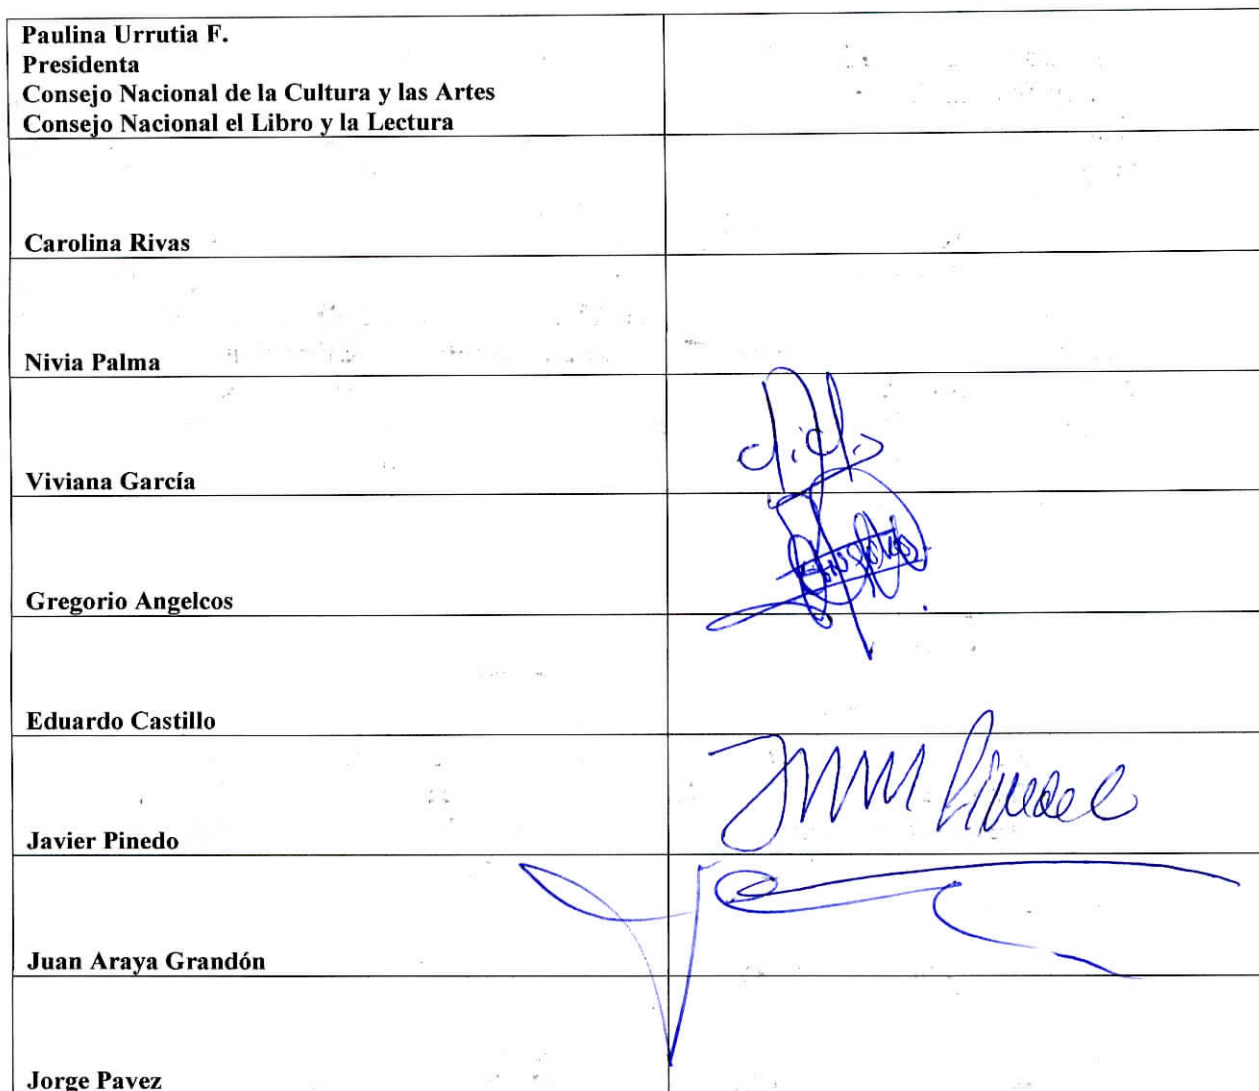 Paulina Urrutia F.
Presidenta
Consejo Nacional de la Cultura y las Artes
Consejo Nacional el Libro y la Lectura
Carolina Rivas
Nivia Palma
Viviana García
Gregorio Angelcos
Eduardo Castillo
Javier Pinedo
Juan Araya Grandón
Jorge Pavez